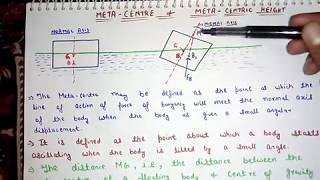 META-CENTRE & META-CENTRIC HEIGHT
NORMAL AXIS
NORMAL AXIS
G
B
G
M
B
B₁
FB
⇒ The Meta-centre may be defined as the point at which the
line of action of force of buoyancy will meet the normal axis
of the body when the body is given a small angular
displacement.
⇒ It is defined as the point about which a body starts
oscillating when the body is tilted by a small angle.
⇒ The distance MG, i.e., the distance between the
of a floating body & Centre of gravity